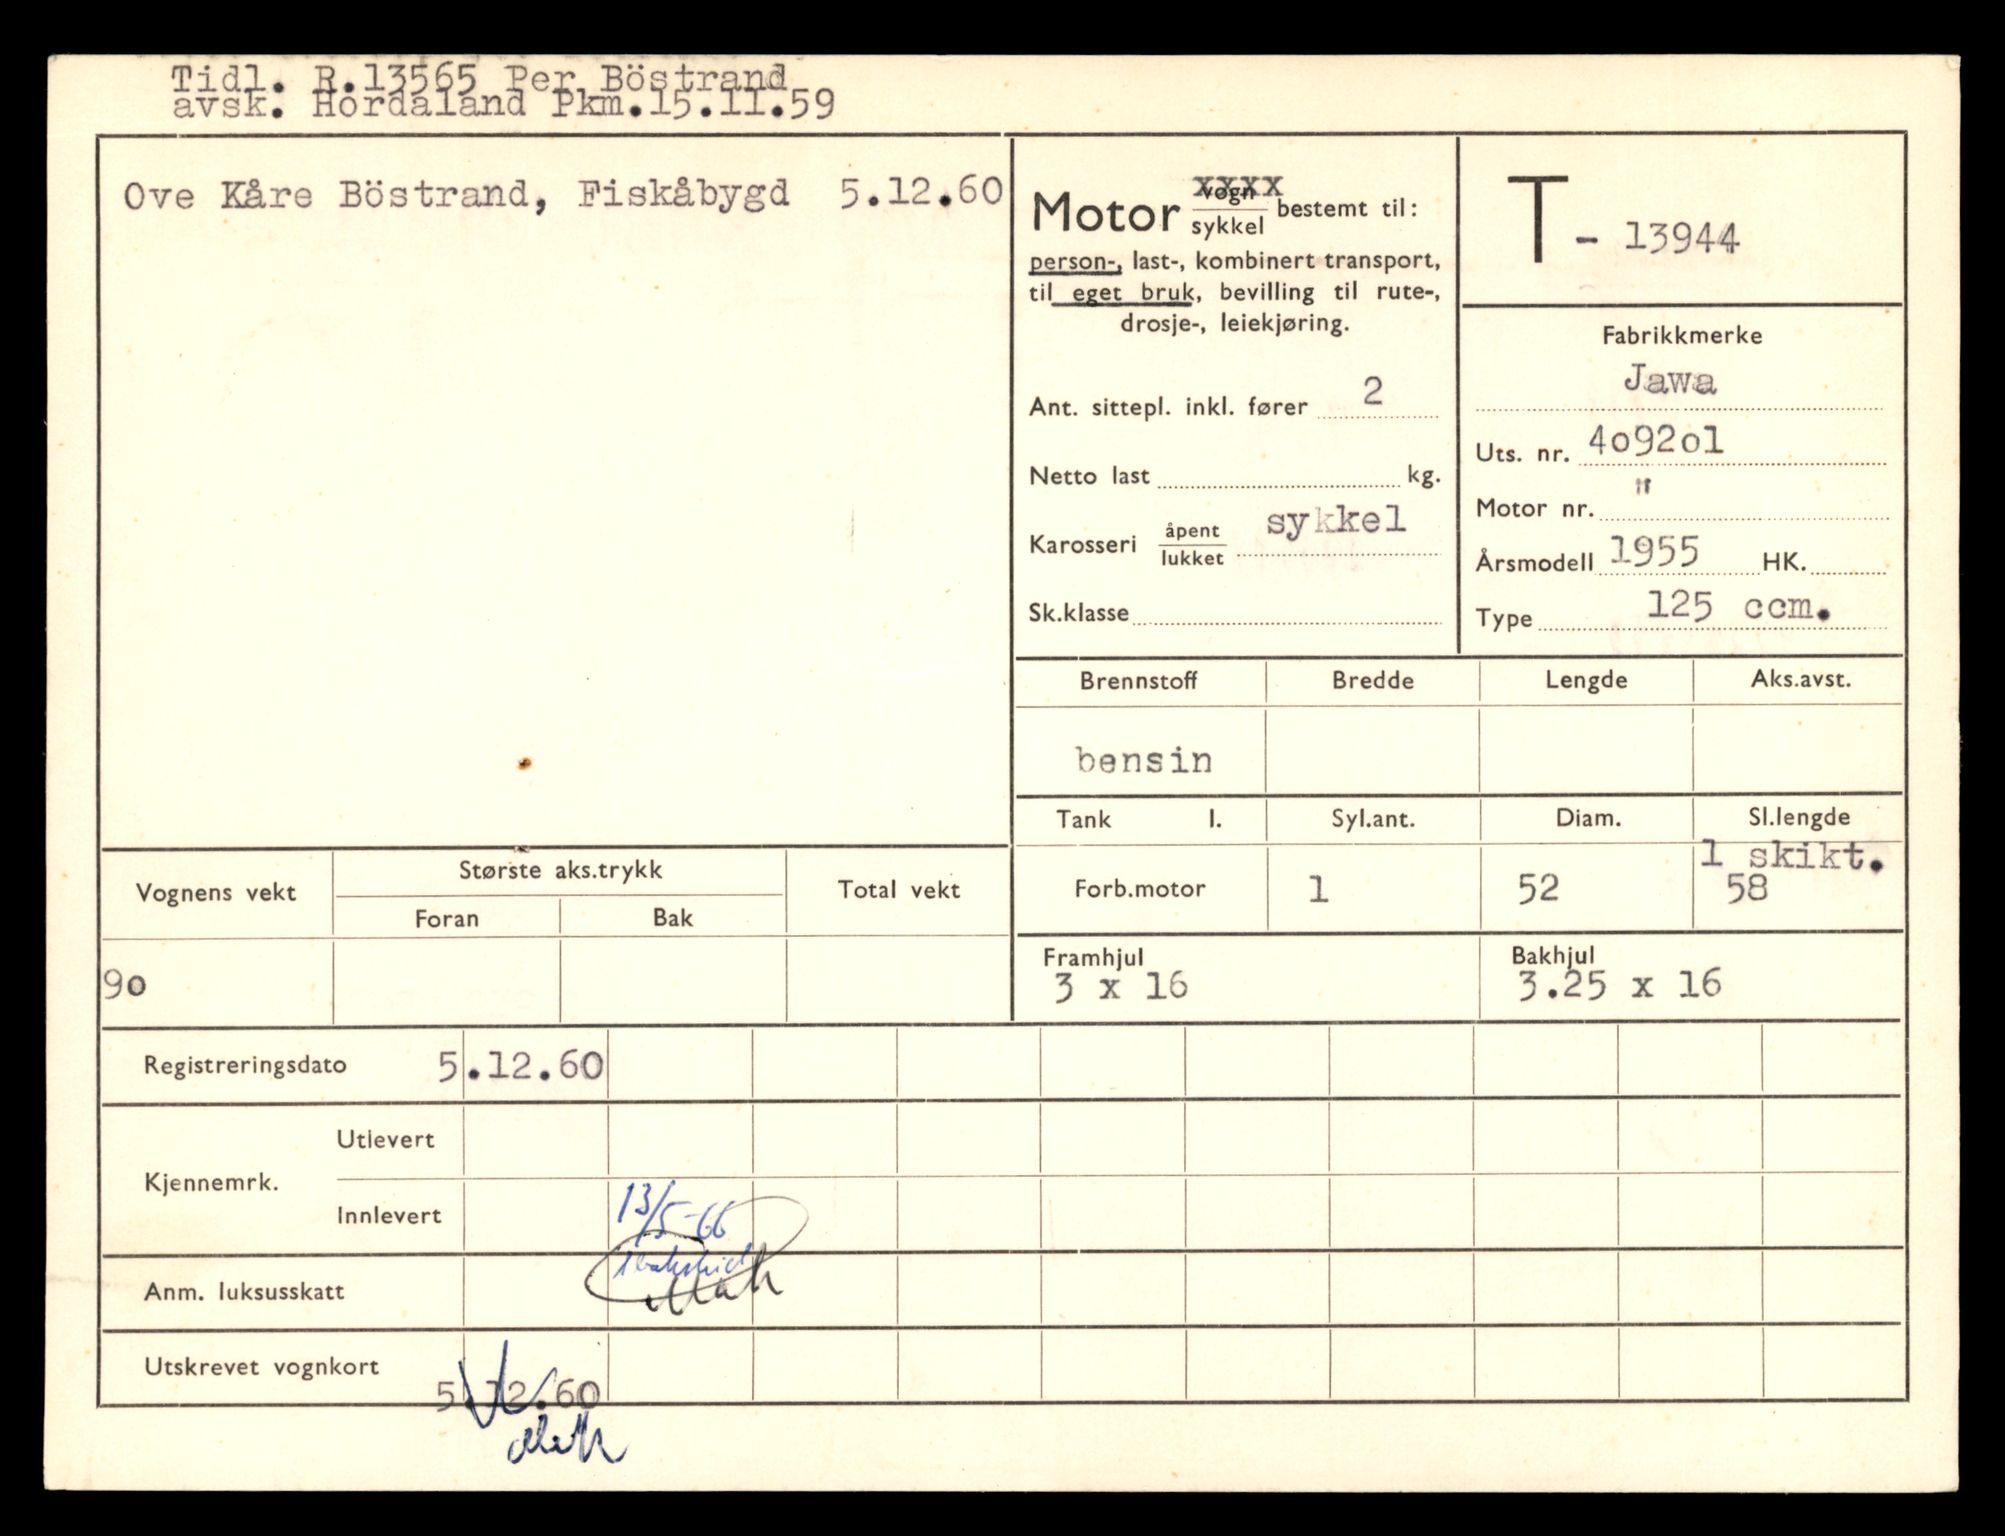 Tidl. R.13565 Per Böstrand
avsk. Hordaland Pkm.15.11.59
Ove Kåre Böstrand, Fiskåbygd 5.12.60
Motor vogn/sykkel bestemt til:
person-, last-, kombinert transport,
til eget bruk, bevilling til rute-,
drosje-, leiekjøring.
Ant. sittepl. inkl. fører 2
Netto last kg.
Karosseri åpent/lukket sykkel
Sk.klasse
T - 13944
Fabrikkmerke
Jawa
Uts. nr. 4o92o1
Motor nr. "
Årsmodell 1955 HK.
Type 125 ccm.
Brennstoff Bredde Lengde Aks.avst.
bensin
Tank l. Syl.ant. Diam. Sl.lengde
1 skikt.
Forb.motor 1 52 58
Framhjul Bakhjul
3 x 16 3.25 x 16
Vognens vekt Største aks.trykk Total vekt
Foran Bak
9o
Registreringsdato 5.12.60
Kjennemrk. Utlevert
Innlevert 13/5-66
1 bakskilt
Anm. luksusskatt
Utskrevet vognkort 5.12.60